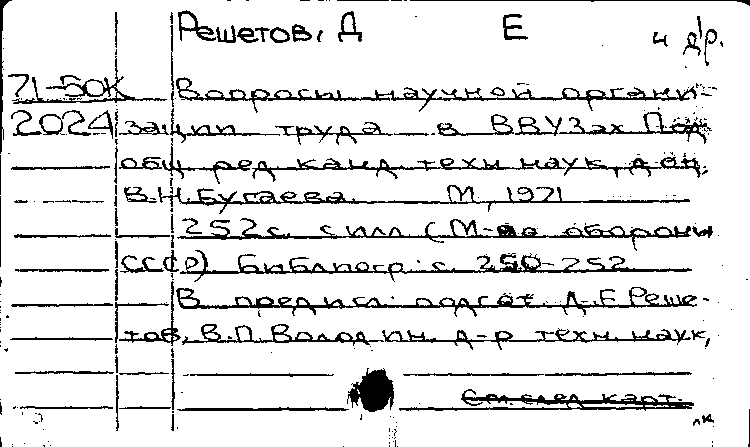 Решетов, Д Е и др.
71-50К Вопросы научной органи-
2024 зации труда в ВВУЗах Под
общ. ред. канд. техн. наук, доц.
В.Н. Бугаева. М, 1971
252с. с илл (М-во обороны
СССР). Библиогр: с. 250-252
В предисл: подгот. Д.Е. Реше-
тов, В.П. Володин. д-р техн. наук,
См. след карт.
лк